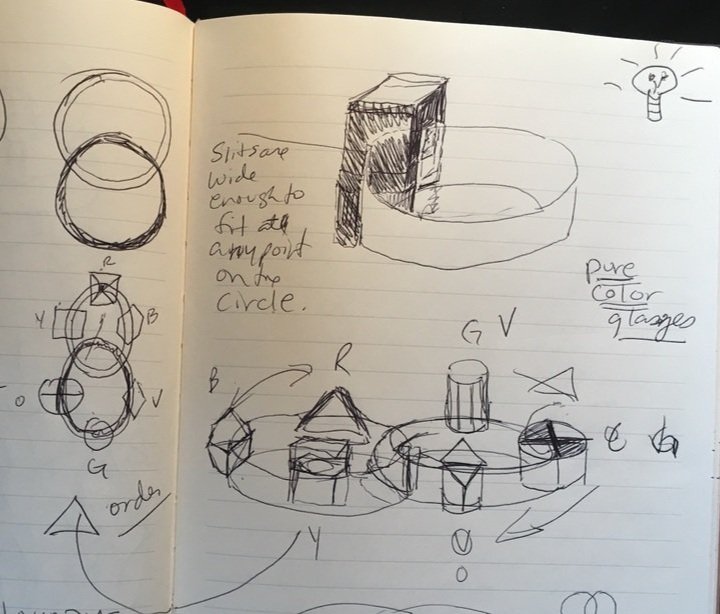 R
Y
B
O
V
G
order
Slits are
wide
enough to
fit at
any point
on the
circle.
pure
color
glasses
G V
R
B
Y
V
O